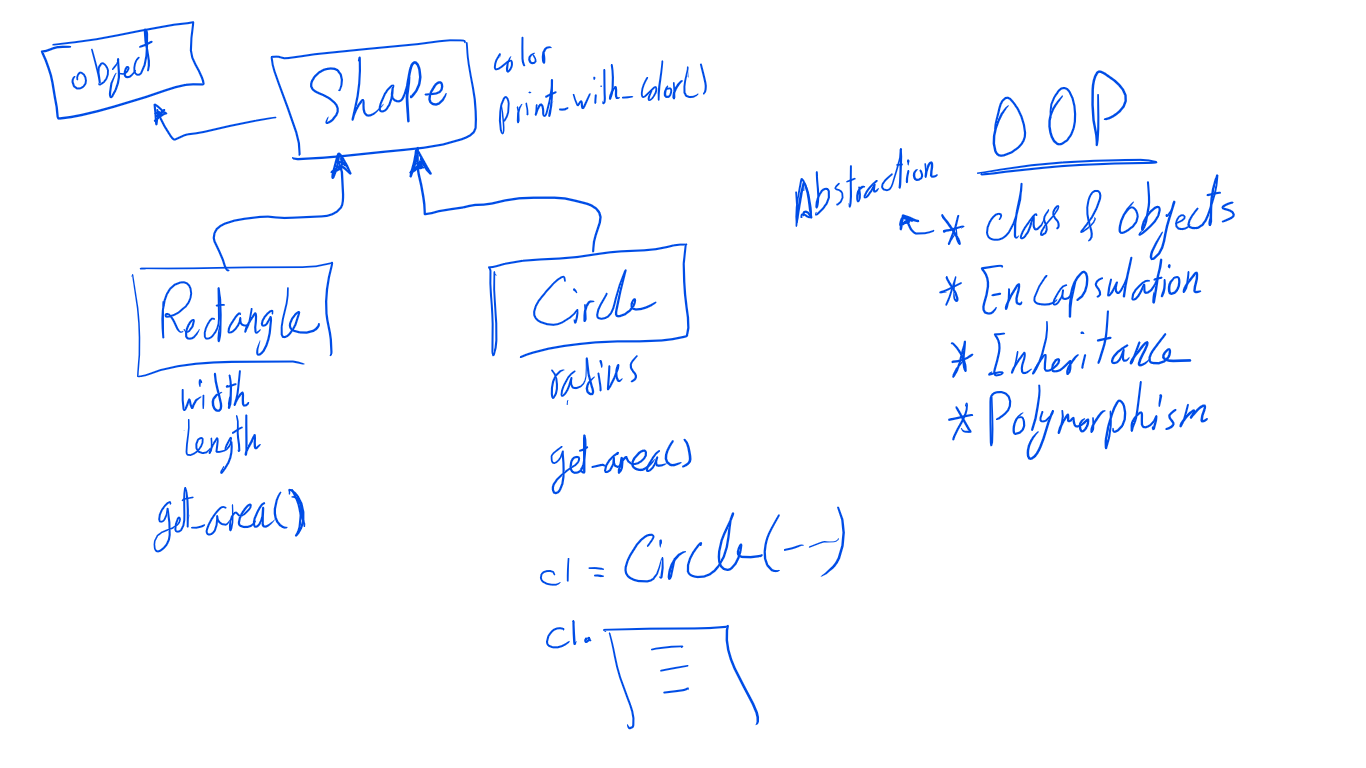 object
Shape
color
print_with_color()
Rectangle
width
length
get_area()
Circle
radius
get_area()
c1 = Circle(---)
c1.
OOP
Abstraction
* class & objects
* Encapsulation
* Inheritance
* Polymorphism